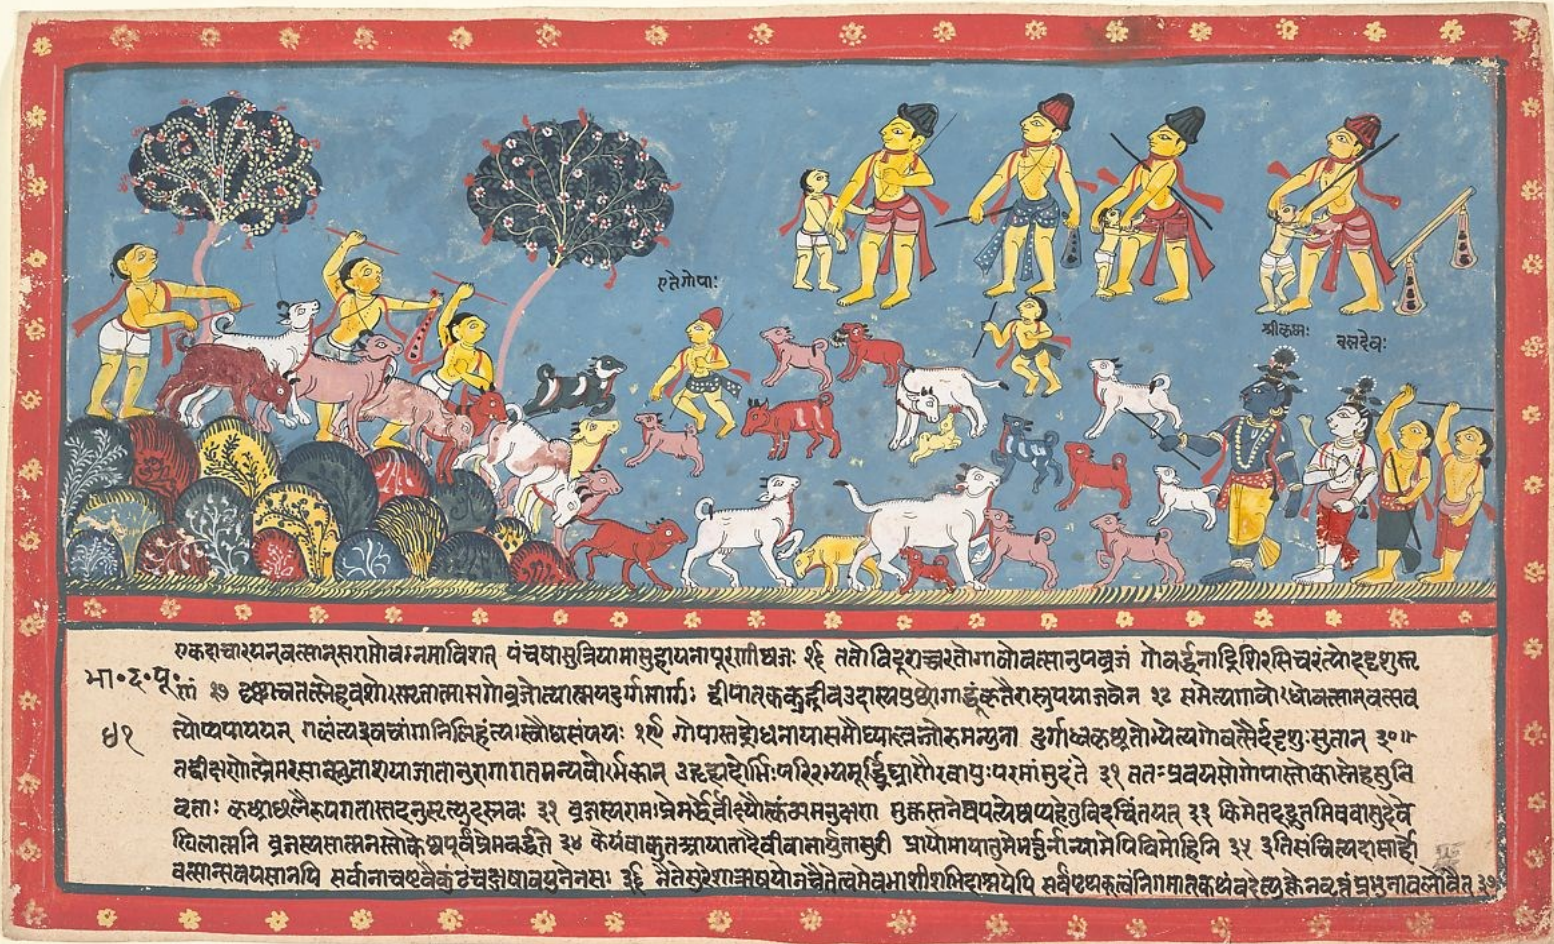 एतेगोपाः
श्रीकृष्णः
बलदेवः
भा॰द॰पू॰
५१
एकदाचारयन्वत्सान्सरामोवनमाविशत् पंचषासुत्रियामासुहायनापूरणीष्वजः २६ ततोविदूराच्चरतोगावोवत्सानुपव्रजं गोवर्द्धनाद्रिशिरसिचरंत्योददृशुस्तृ
णं २७ दृष्ट्वाथतत्स्नेहवशोस्मृतात्मासगोव्रजोत्यात्मपदुर्गमार्गः द्वीपात्ककुद्ग्रीवउदास्यपुच्छोगाद्धूंकृतैरास्रुपयाजवेन २८ समेत्यगावोधोवत्सान्वत्सव
त्योप्यपाययन् गिलंत्यइवचांगानिलिहंत्यःस्वौघसंपयः २९ गोपास्तद्रोधनायासमौघ्यलज्जोरुमन्युना दुर्गाध्वकृच्छ्रतोभ्येत्यगोवत्सैर्ददृशुःसुतान् ३०॥
तदीक्षणोत्प्रेमरसाप्लुताशयाजातानुरागागतमन्यवोर्भकान् उदुह्यदोर्भिःपरिरभ्यमूर्द्ध्निघ्राणैरवापुःपरमांमुदंते ३१ ततःप्रवयसोगोपास्तोकाश्लेषसुनि
र्वृताः कृच्छ्राच्छनैरुपगतास्तदनुस्मृत्युदस्रवः ३२ व्रजस्यरामःप्रेमर्द्धेर्वीक्ष्यौत्कंठ्यमनुक्षणं मुक्तस्तनेष्वपत्येष्वप्यहेतुविदचिंतयत् ३३ किमेतदद्भुतमिववासुदेवे
खिलात्मनि व्रजस्यसात्मनस्तोकेष्वपूर्वंप्रेमवर्द्धते ३४ केयंवाकुतआयातादैवीवानार्युतासुरी प्रायोमायास्तुमेभर्त्तुर्नान्यामेपिविमोहिनी ३५ इतिसंचिंत्यदाशार्हो
वत्सान्सवयसानपि सर्वानाचष्टवैकुंठंचक्षुषावयुनेनसः ३६ नैतेसुरेशाऋषयोनचैतेत्वमेवभासीशभिदाश्रयेपि सर्वंपृथक्त्वंनिगमात्कथंवदेत्युक्तेनवृत्तंप्रभुनाबलोवैत् ३७